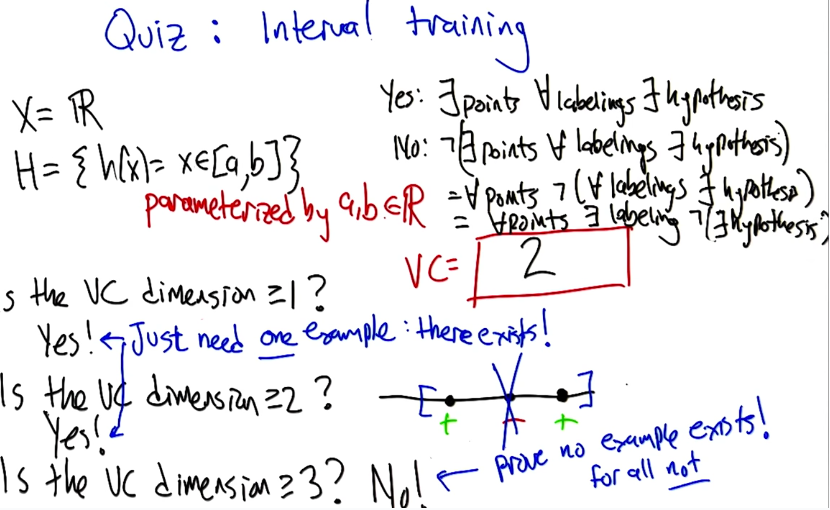 Quiz : Interval training
X = ℝ
H = { h(x) = x∈[a,b] }
parameterized by a,b ∈ ℝ
Yes: ∃ points ∀ labelings ∃ hypothesis
No: ¬(∃ points ∀ labelings ∃ hypothesis)
= ∀ points ¬ (∀ labelings ∃ hypothesis)
= ∀ points ∃ labeling ¬ (∃ hypothesis)
VC = 2
s the VC dimension ≥1 ?
Yes! ← Just need one example : there exists!
Is the VC dimension ≥2 ?
Yes!
[ ]
+ - +
Is the VC dimension ≥3? No! ← prove no example exists!
for all not